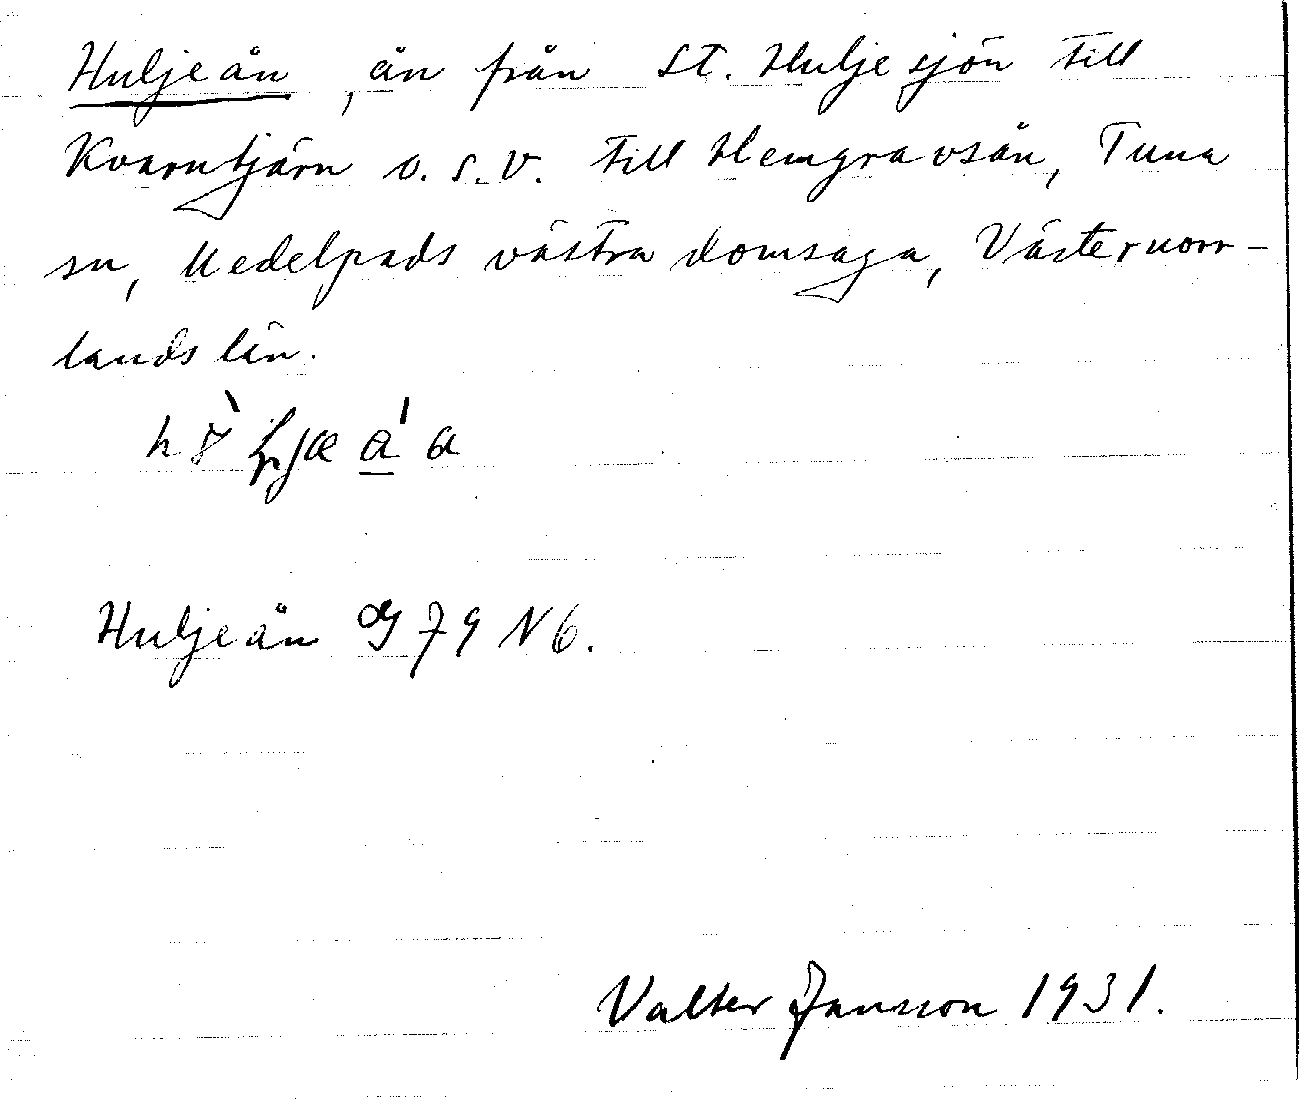 Huljeån, ån från St. Huljesjön till
Kvarntjärn o.s.v. till Hemgravsån, Tuna
sn, Medelpads västra domsaga, Västernorr-
lands län.
Huljeån G 79 N 6.
Valter Jansson 1931.